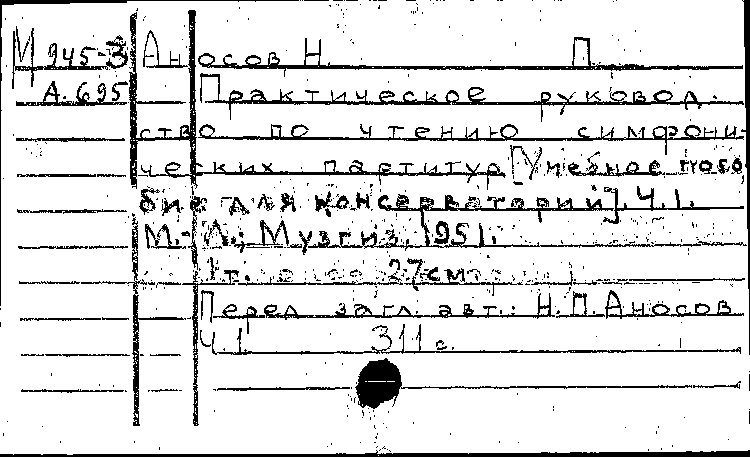 М 945-3 Аносов Н. П.
А.695 Практическое руковод-
ство по чтению симфони-
ческих партитур [Учебное посо
бие для консерваторий]. Ч.1.
М.-Л.; Музгиз, 1951.
1т. 27см
Перед загл. авт.: Н.П.Аносов
Ч.1 311 с.